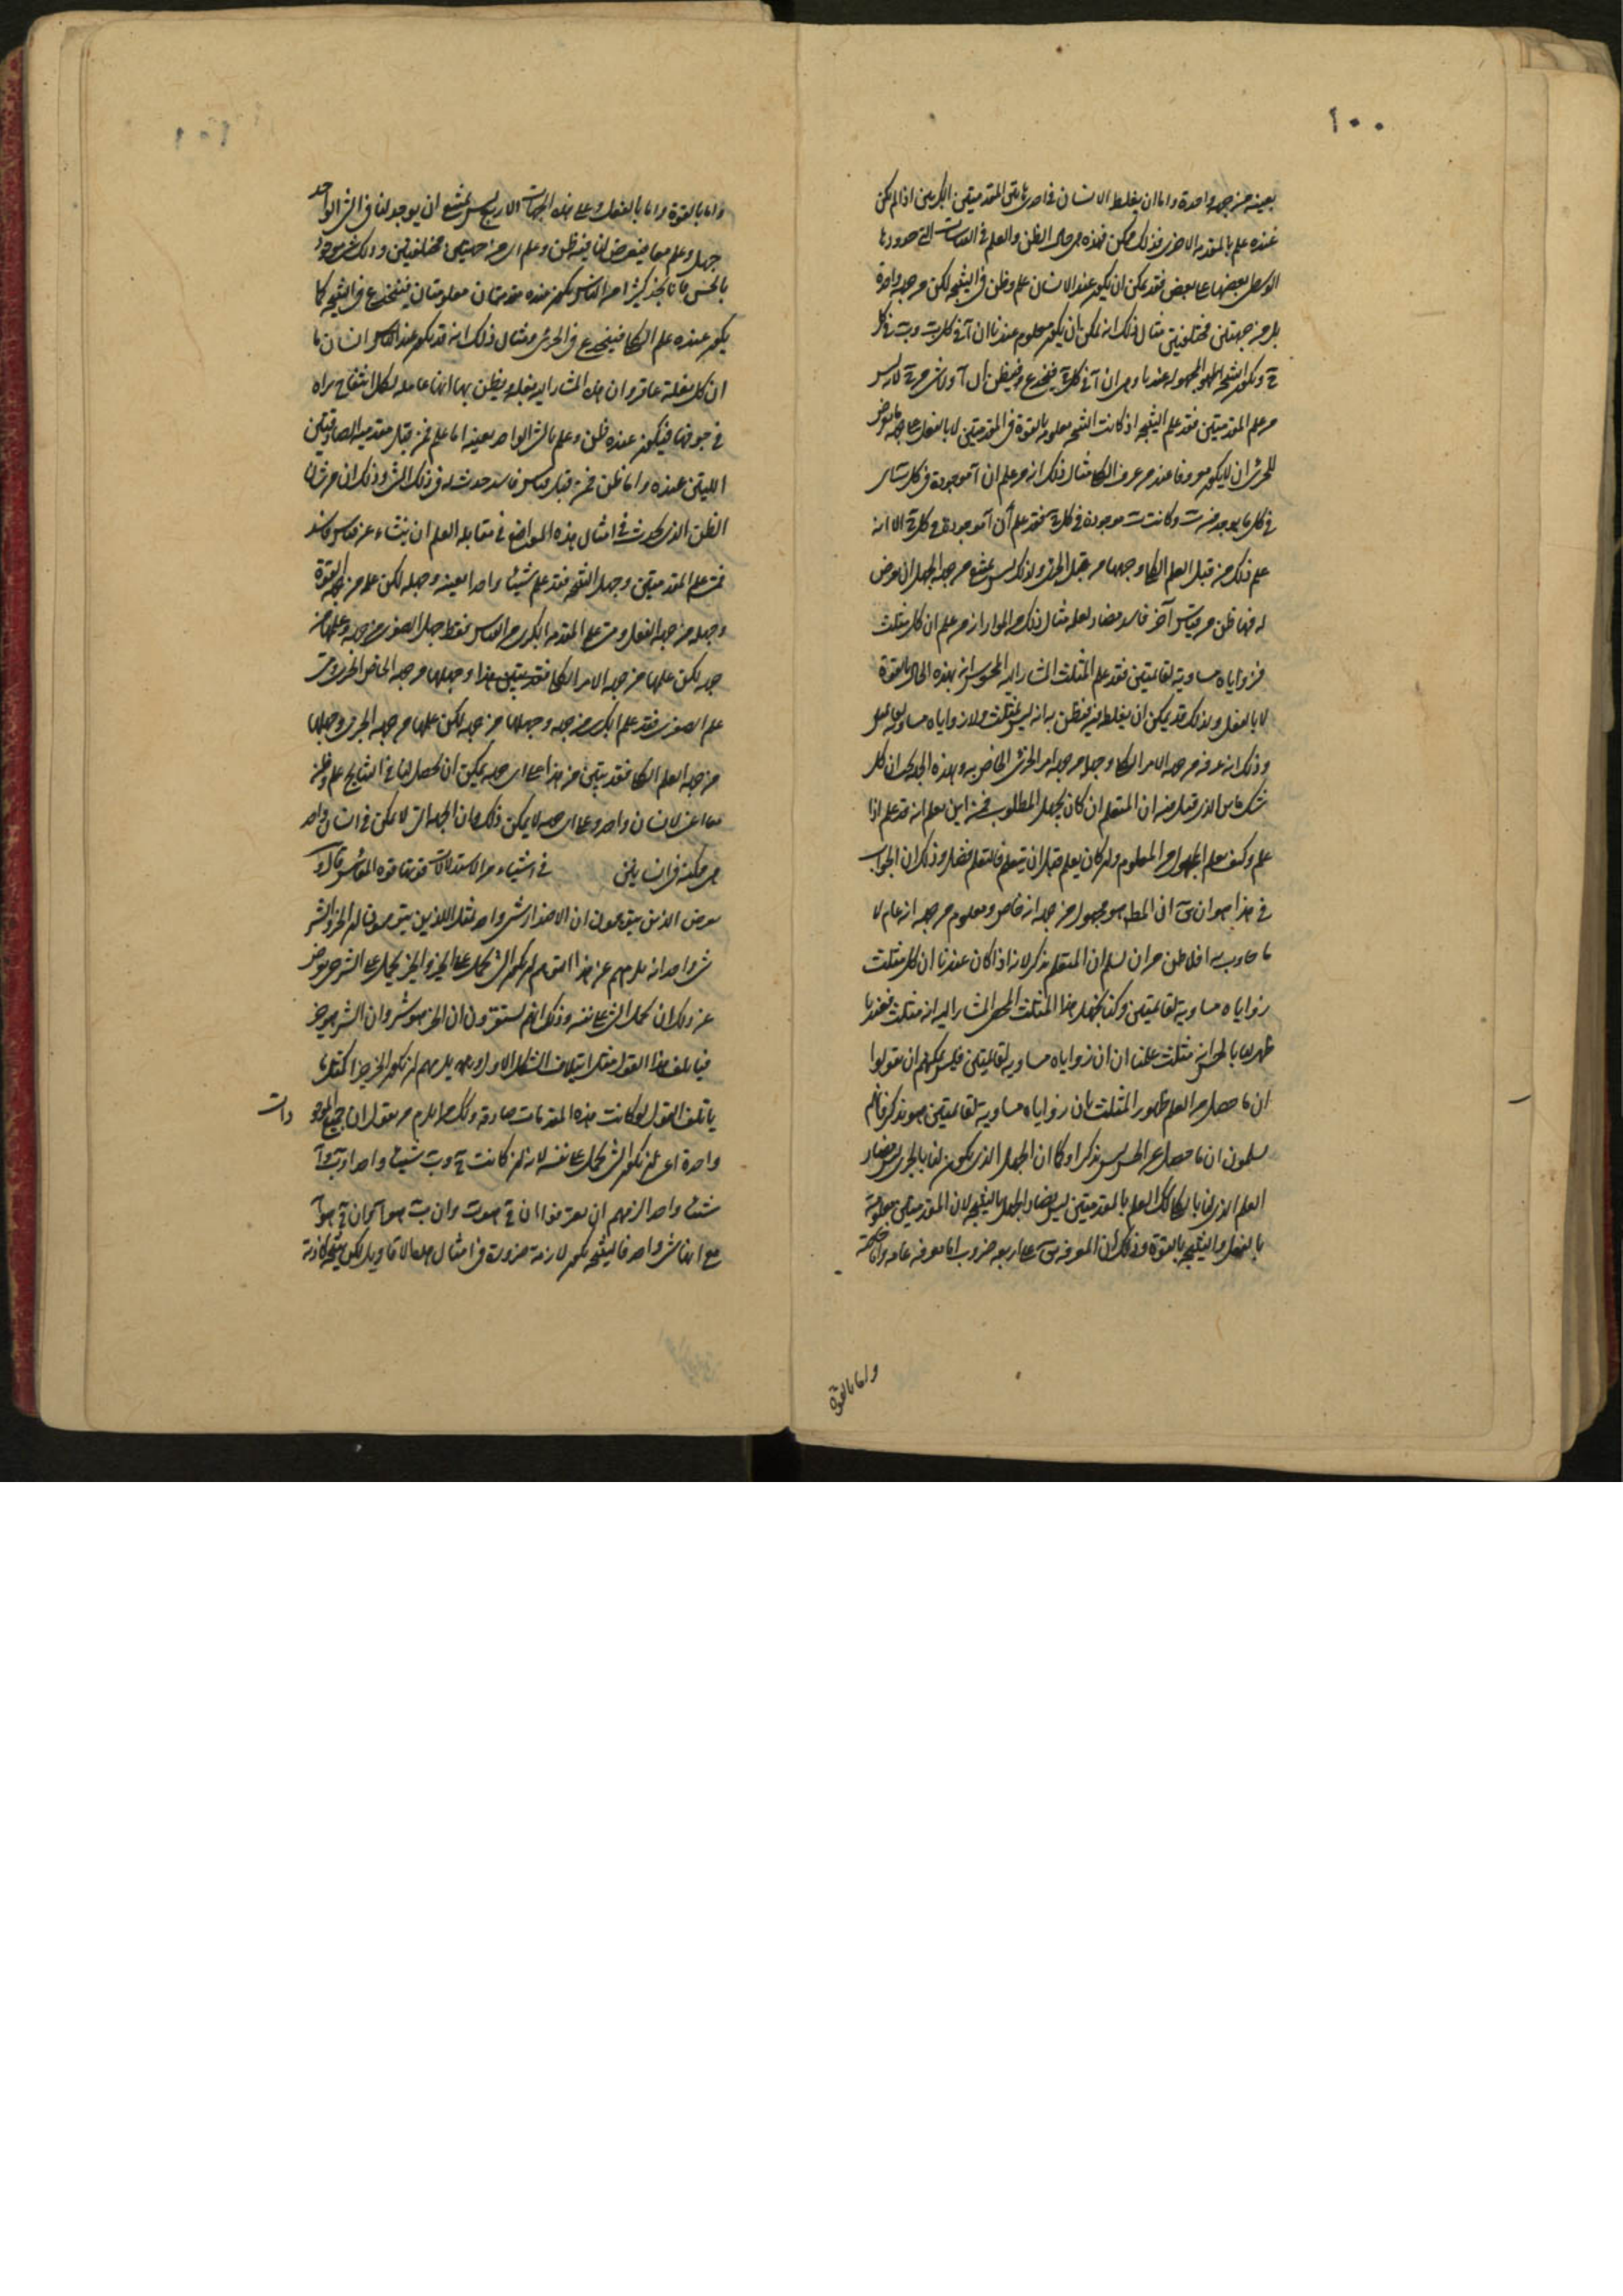 ١٠٠
بعينه من جهة واحدة واما ان يغلط الانسان في احدى المقدمتين الكبريين اذا لم يكن
عنده علم بالمقدمة الاخرى فذلك ممكن فهذه هي حال الظن والعلم في القياسات التي حدودها
الوسطى بعضها على بعض فقد يمكن ان يكون عند الانسان علم وظن في النتيجة لكن من جهة واحدة
بل من جهتين مختلفتين مثال ذلك انه يمكن ان يكون معلوم عندنا ان آ في كل ب وب في كل
ج وتكون النتيجة المجهولة عندنا وهي ان آ في كل ج فينخدع فيظن ان آ ولا في شيء من ج لانه ليس
من علم المقدمتين فقد علم النتيجة اذ كانت النتيجة معلومة بالقوة في المقدمتين لا بالفعل على جهة ما يعرض
للجزئي ان لا يكون معروفا عند من عرف الكلي مثال ذلك انه من علم ان آ موجودة في كل ب اي
في كل ما يوجد فيه ب وكانت ب موجودة في كل ج فقد علم ان آ موجودة في كل ج الا انه
علم ذلك من قبل العلم الكلي وجهلها من قبل الجزئي ولذلك ليس يمتنع من جهة الجهل ان يعرض
له فيها ظن من قياس آخر فاسد مضاد لعلمه مثال ذلك من المواد ان من علم ان كل مثلث
فزواياه مساوية لقائمتين فقد علم المثلث المشار اليه المحسوس انه بهذه الحال بالقوة
لا بالفعل ولذلك قد يمكن ان يغلط فيه فيظن به انه ليس بمثلث ولا زواياه مساوية لقائمتين
وذلك انه عرفه من جهة الامر الكلي وجهله من جهة الامر الجزئي الخاص به وبهذه الجهة ينحل كل
شك مانن الذي قيل فيه ان المتعلم ان كان يجهل المطلوب فمن اين يعلم انه قد علم اذا
علم وكيف يعلم المجهول من المعلوم وان كان يعلم قبل ان يتعلم فالتعلم فضل وذلك ان الجواب
في هذا هو ان يق ان المط هو مجهول من جهة انه خاص ومعلوم من جهة انه عام لا
ما جاوب به افلاطن من ان سلم ان التعلم تذكر لانه اذا كان عندنا ان كل مثلث
زواياه مساوية لقائمتين وكنا نجهل هذا المثلث المحسوس المشار اليه انه مثلث فعندما
ظهر لنا بالحس انه مثلث علمنا ان زواياه مساوية لقائمتين فليس يمكنهم ان يقولوا
ان ما حصل من العلم بظهور المثلث بان زواياه مساوية لقائمتين هو تذكر فانهم
يسلمون ان ما حصل عن الحس ليس تذكرا وكما ان الجهل الذي يكون لنا بالجزئي ليس مضاد
العلم الذي لنا بالكلي كذلك العلم بالمقدمتين ليس بضاد الجهل بالنتيجة لان المقدمتين معلومة
بالفعل والنتيجة بالقوة وذلك ان المعرفة يق على اربعة ضروب اما معرفة عامة واما خاصة
واما بالقوة
١٠١
واما بالقوة واما بالفعل وعلى هذه الجهات الاربع ليس يمتنع ان يوجد لنا في الشيء الواحد
جهل وعلم معا فيعرض لنا فيه ظن وعلم اي من جهتين مختلفتين وذلك شيء موجود
بالحس فانا نجد كثيرا من الناس يكون عنده مقدمتان معلومتان فينخدع في النتيجة كما
يكون عنده علم الكلي فينخدع في الجزئي ومثال ذلك انه قد يكون عند انسان ما
ان كل بغلة عاقر وان هذه المشار اليه بغلة ويظن بها انها حاملة لكل انتفاخ يراه
في جوفها فيكون عنده ظن وعلم بالشيء الواحد بعينه اما علم فمن قبل مقدمتيه الصادقتين
اللتين عنده واما ظن فمن قبل قياس فاسد حدث له في ذلك الشيء وذلك ان من شان
الظن الذي يحدث في امثال هذه المواضع في مقابلة العلم ان ينشاء عن قياس فاسد
فمن علم المقدمتين وجهل النتيجة فقد علم شيئا واحدا بعينه وجهله لكن علمه من جهة القوة
وجهله من جهة الفعل ومن علم المقدمة الكبرى من القياس فقط جهل الصغرى من جهة وعلمها من
جهة لكن علمها من جهة الامر الكلي وجهلها من جهة الخاص الجزئي ومن
علم الصغرى فقد علم الكبرى من جهة وجهلها من جهة لكن علمها من جهة الجزئي وجهلها
من جهة العلم الكلي فقد تبين من هذا على اي جهة يمكن ان يحصل لنا في النتايج علم وظن
معا اعني لانسان واحد وعلى اي جهة لا يمكن ذلك وان الجهة التي لا يمكن في انسان واحد
هي ممكنة في انسانين في اشياء من الاستدلالات قوتها قوة المقاييس قال و
يعرض الذين يتوهمون ان الاضداد شيء واحد مثل الذين يتوهمون ان الخير والشر
شيء واحد انه يلزمهم عن هذا التوهم ان يكون الشر يحمل على الخير والخير يحمل على الشر حتى يعرض
عن ذلك ان يحمل الشيء على نفسه وذلك انهم يستقرون ان الخير هو شر وان الشر هو خير
فياتلف هذا القول مثل ايتلاف الشكل الاول ويلزمهم ان يكون الخير خيرا كمثل ما
ياتلف القول لو كانت هذه المقدمات صادقة وكذلك يلزم من يقول ان جميع الموجو
دات
واحدة اعني ان يكون الشيء يحمل على نفسه لانه ان كانت ج وب شيئا واحدا وب وآ
شيئا واحدا لزمهم ان يعترفوا ان ج هو ب وان ب هو آ فان ج هو آ
مع انها شيء واحد فالنتيجة تكون لازمة ضرورة في امثال هذه الاقاويل لكن نتيجة كاذبة